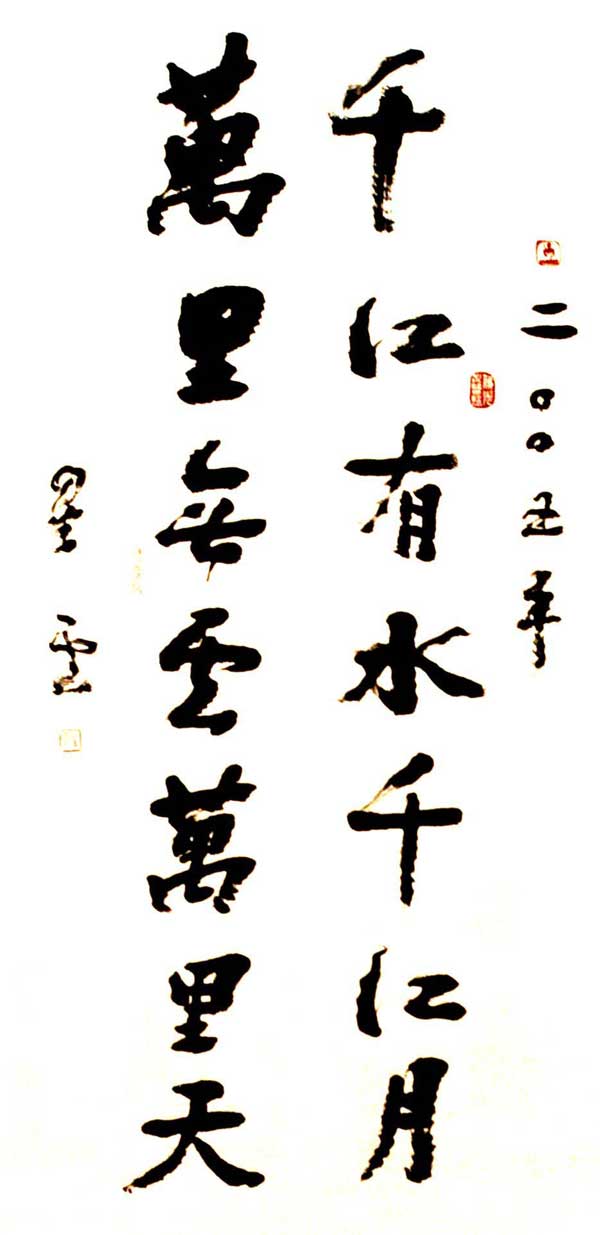 二〇〇五年
千江有水千江月
萬里無雲萬里天
星雲